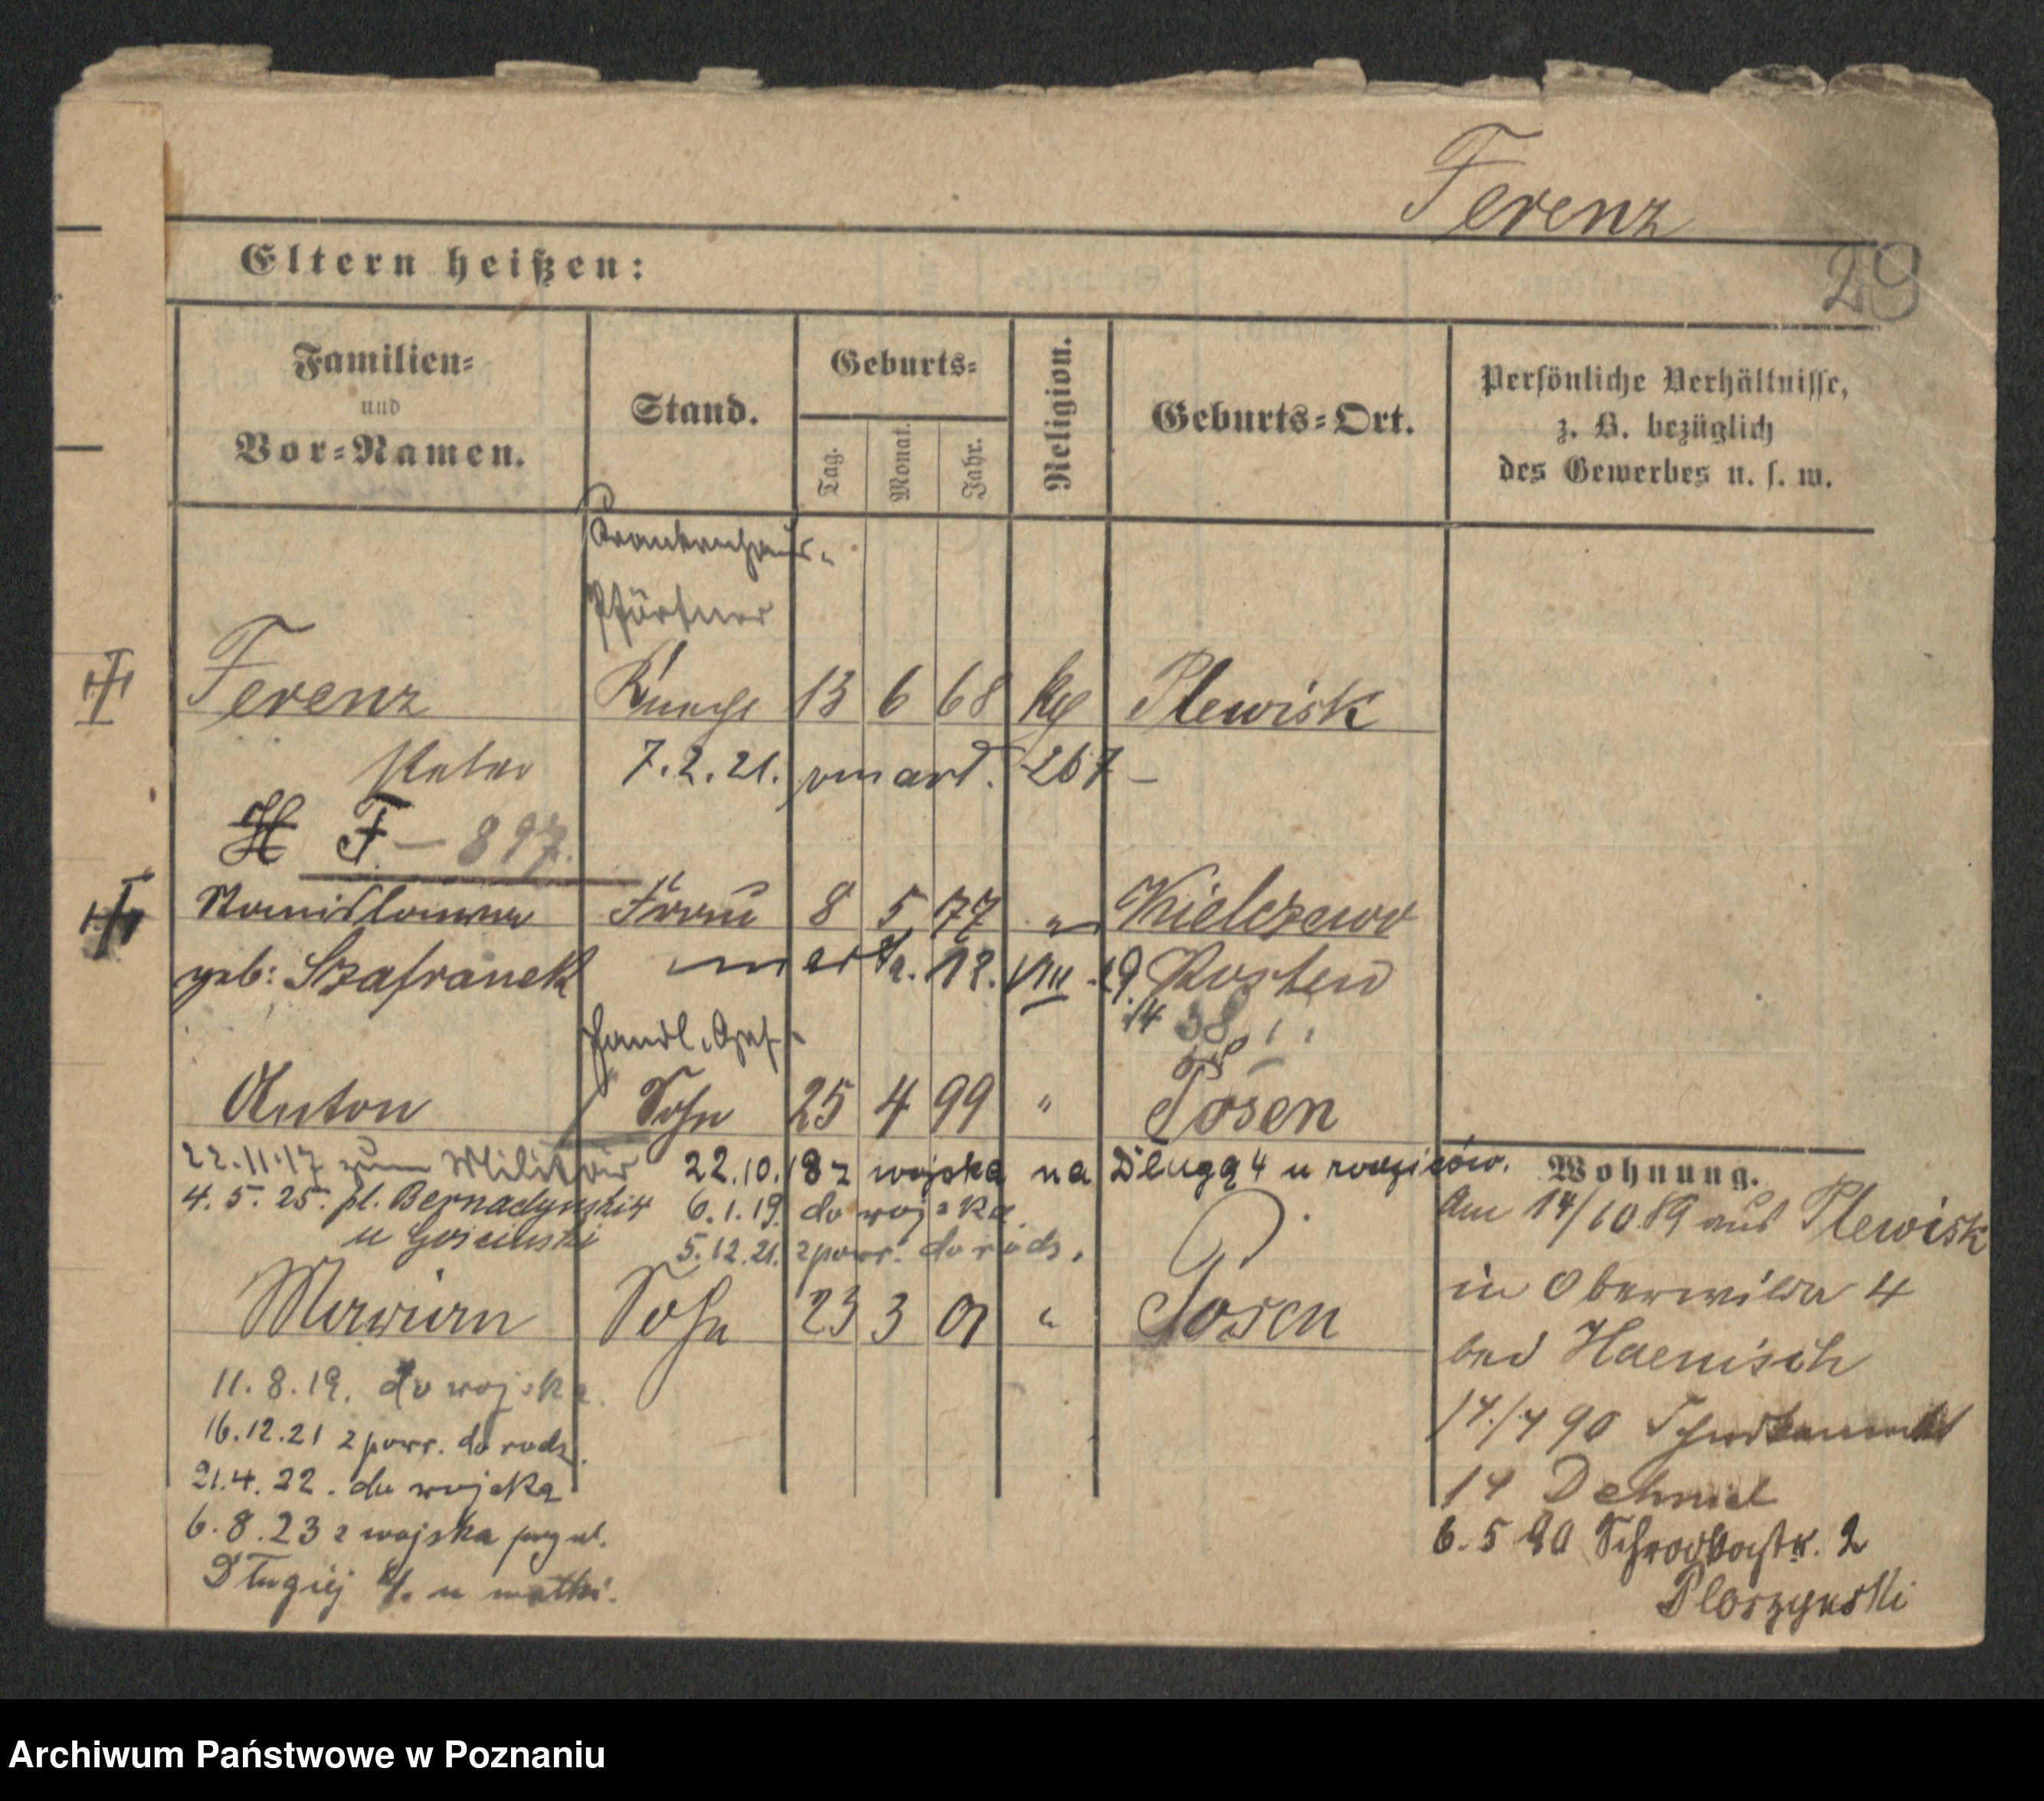 Ferenz
29
Eltern heißen:
Familien-
und
Vor-Namen.
Stand.
Geburts-
Tag.
Monat.
Jahr.
Religion.
Geburts-Ort.
Persönliche Verhältnisse,
z. B. bezüglich
des Gewerbes u. s. w.
Krankenhaus-
Pförtner
Ferenz 13 6 68 Plewisk
Peter 7.2.21. 267
H F - 897.
Stanislawa Frau 8 5 77 " Kielczewo
geb: Szafranek 12. VIII 19 Kosten
14
Handl. Geh.
Anton Sohn 25 4 99 " Posen
22.11.17 zum Militär 22.10.18 z wojska na Długą 4 u rodziców.
4. 5. 25. pl. Bernadyński 4 6.1.19. do wojska
u 5.12.21. z powr. do rodz.
Maryan Sohn 23 3 01 " Posen
11.8.19. do wojska.
16.12.21 z powr. do rodz.
21.4.22. do wojska
6.8.23 z wojska przy ul.
Długiej 4. u matki.
Wohnung.
Am 14/10 89 aus Plewisk
in Oberwilda 4
bei Haenisch
14/4 90
14 Dehmel
6.5 90 Schrodkastr. 2
Ploszynski
Archiwum Państwowe w Poznaniu